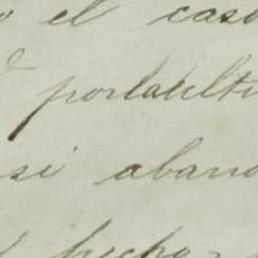 o el caso
por la ulti
si aban
hecho